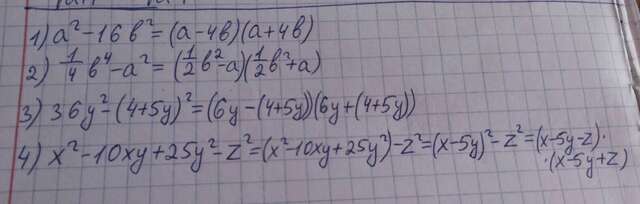 1) a² - 16b² = (a - 4b)(a + 4b)
2) 1/4 b⁴ - a² = (1/2 b² - a)(1/2 b² + a)
3) 36y² - (4+5y)² = (6y - (4+5y))(6y + (4+5y))
4) x² - 10xy + 25y² - z² = (x² - 10xy + 25y²) - z² = (x - 5y)² - z² = (x - 5y - z)·
·(x - 5y + z)